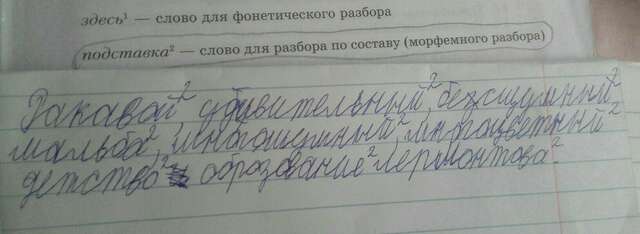 здесь¹ — слово для фонетического разбора
подставка² — слово для разбора по составу (морфемного разбора)
Ракавой², удивительный², безшумный²
мальба², многошумный², многоцветный²
детство² образование² лермонтова²